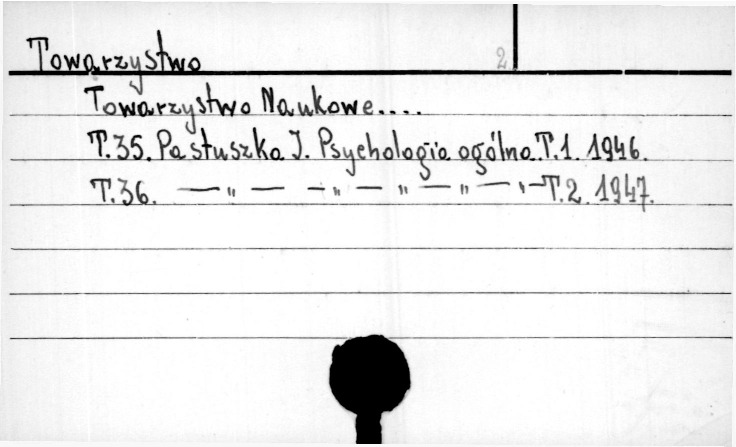 Towarzystwo 2
Towarzystwo Naukowe....
T.35. Pastuszka J. Psychologia ogólna. T.1. 1946.
T.36. — „ — — „ — „ — „ — „ — T.2. 1947.